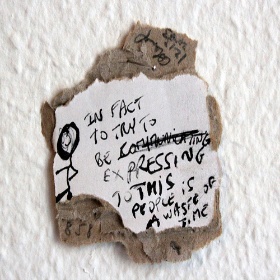 IN FACT
TO TRY TO
BE COMMUNICATING
EXPRESSING
TO THIS
PEOPLE IS
A WASTE OF
TIME